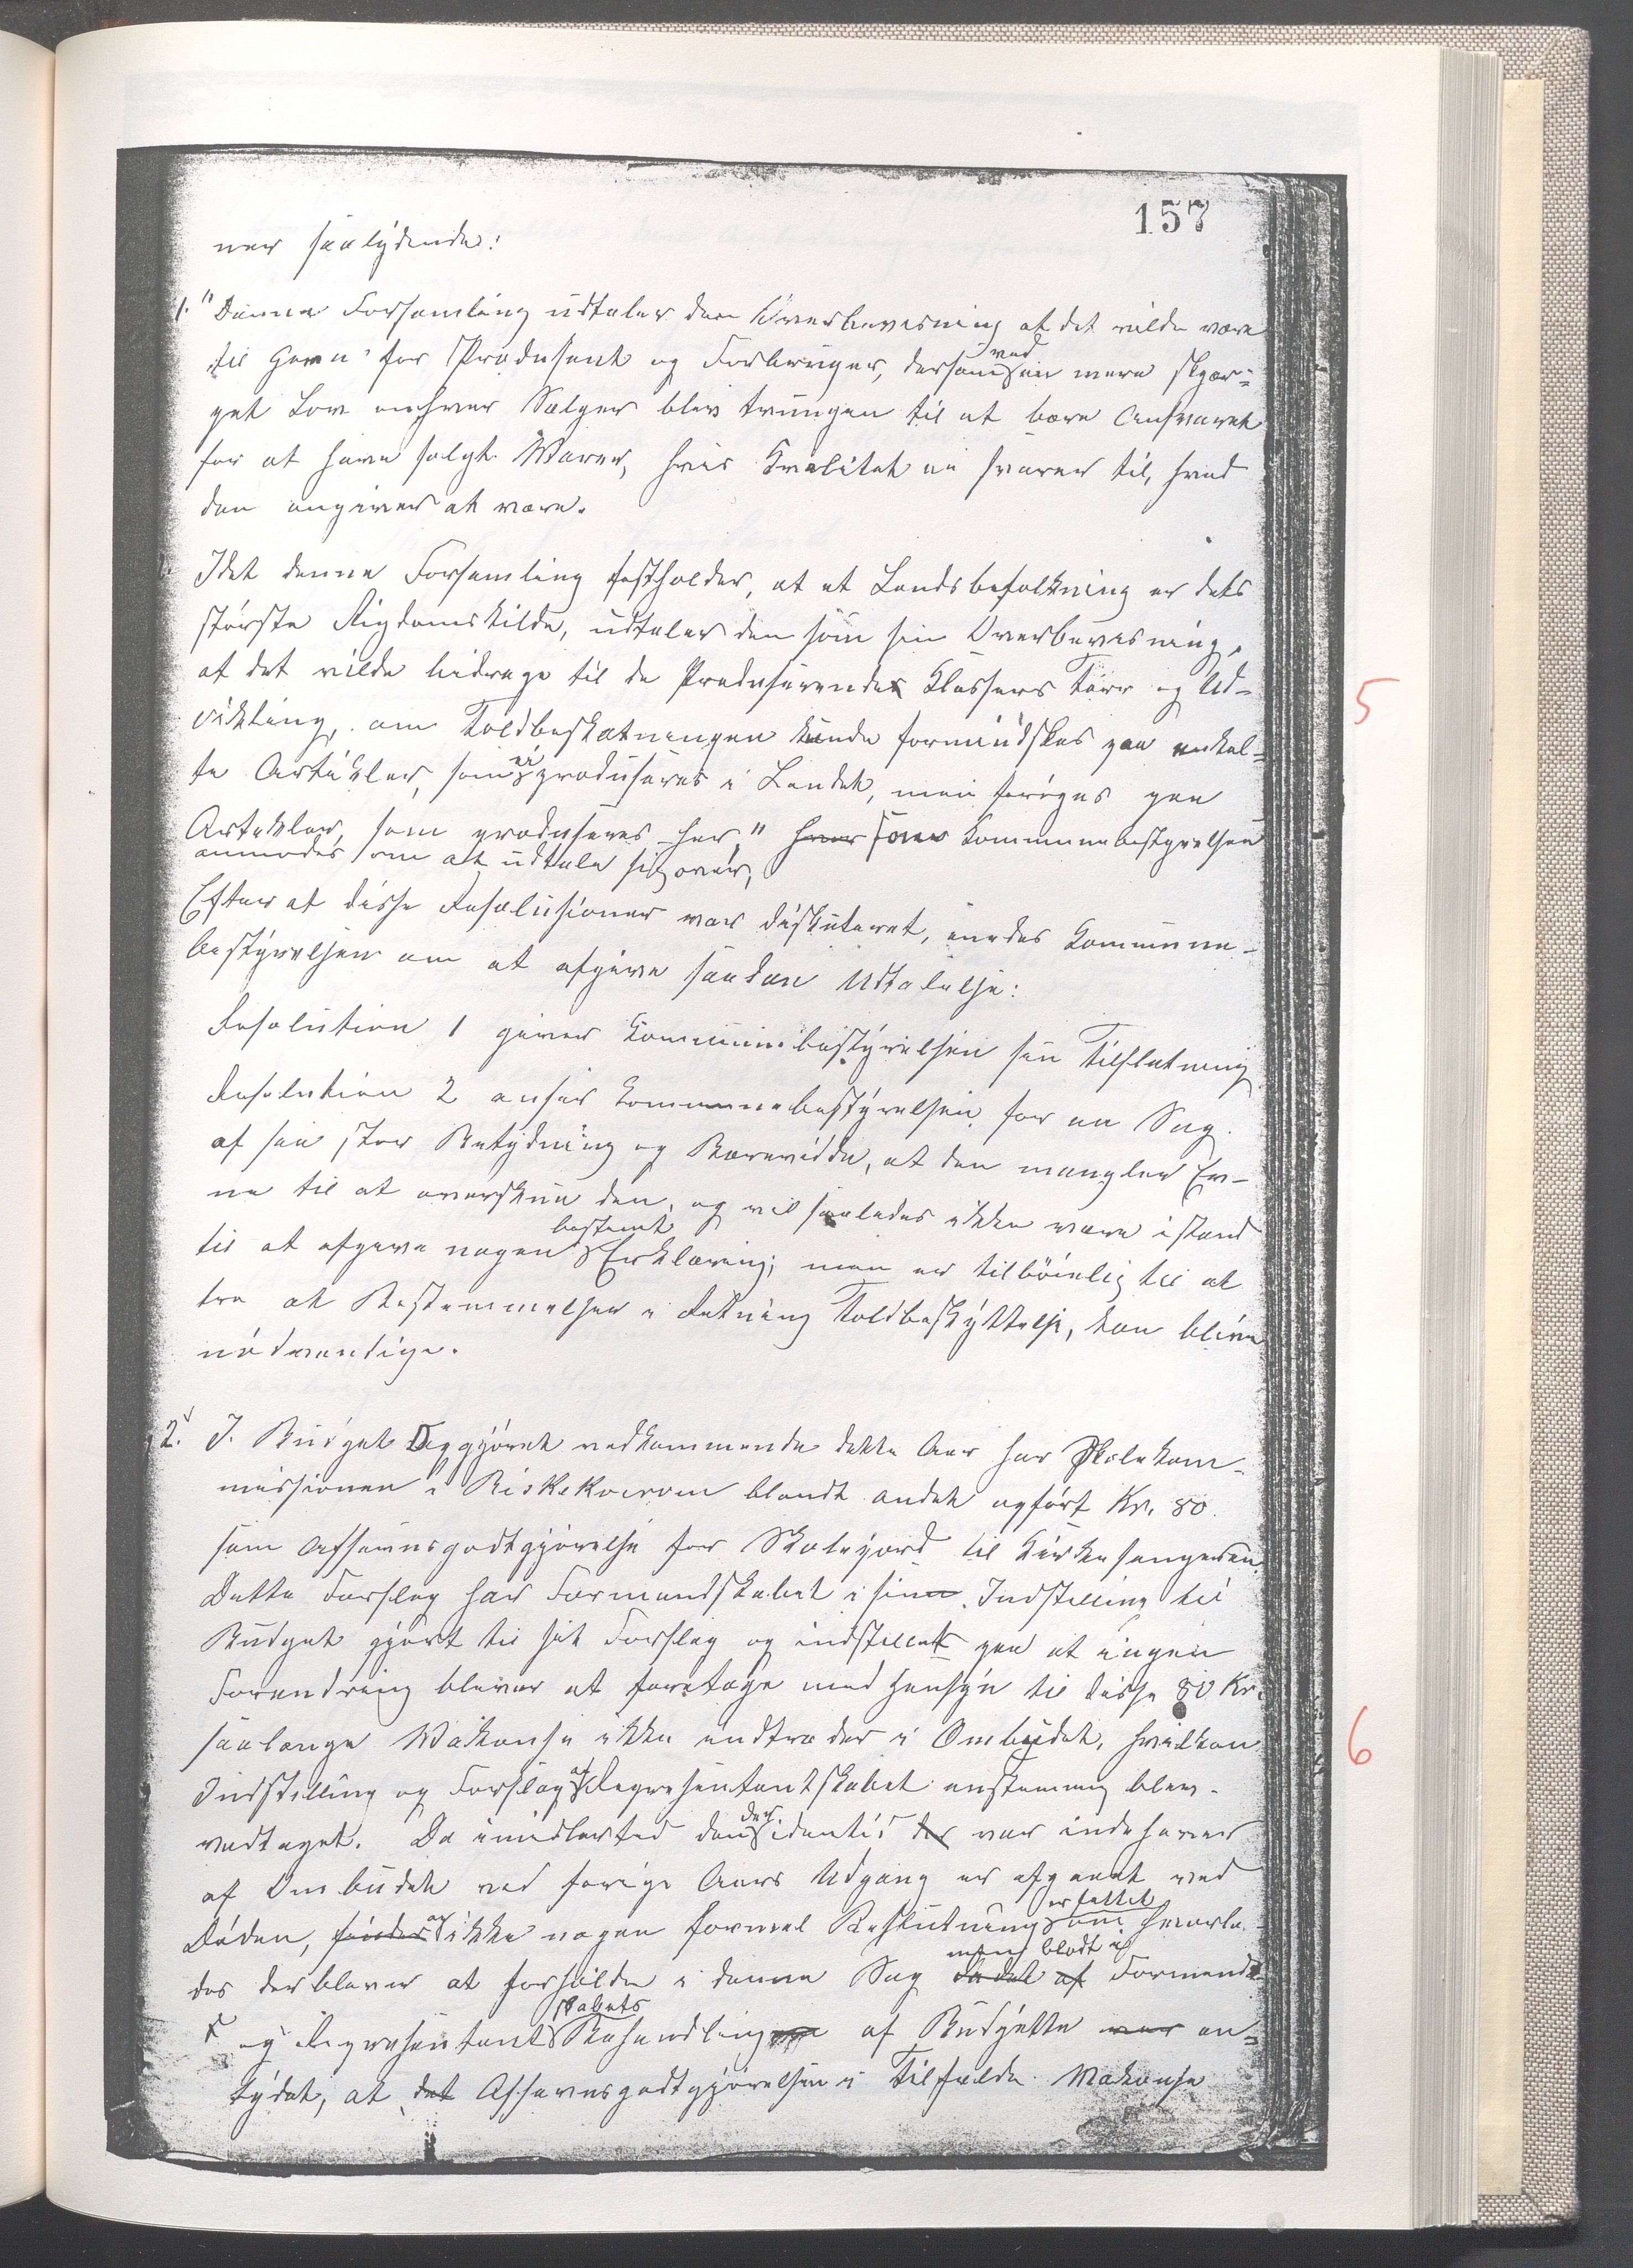 157
ner saalydende:
1. "Denne Forsamling udtaler den Overbevisning at det vilde være
til Gavn for Produsent og Forbruger, dersom ved en mere skjær-
pet Lov enhver Sælger blev tvungen til at bære Ansvaret
for at have solgt Varer, hvis Kvalitet ei svarer til, hvad
den angives at være.
Idet denne Forsamling fastholder, at et Landsbefolkning er dets
største Rigdomskilde, udtaler den som sin Overbevisning,
at det vilde bidrage til de Produserende Klassers Tarv og Ud-
vikling, om Toldbeskatningen kunde formindskes paa enkel-
te Artikler, som ei produseres i Landet, men forøges paa
Artikler, som produseres her," hvor som Kommunebestyrelsen
anmodes om at udtale sig over,
Efter at disse Resolusioner var diskuteret, enedes Kommune-
bestyrelsen om at afgive saadan Udtalelse:
Resolution 1 giver Kommunebestyrelsen sin Tilslutning
Resolution 2 anser Kommunebestyrelsen for en Sag
af saa stor Betydning og Rærevidde, at den mangler Ev-
ne til at overskue den, og vil saaledes ikke være istand
til at afgive nogen bestemt Erklæring; men er tilbøielig til at
tro at Bestemmelser i Retning Toldbeskyttelse, kan blive
nødvendige.
2. I Budget Opgjøret vedkommende dette Aar har Skolekom-
missionen i Riskekværven blandt andet opført Kr. 80
som Afsavnsgodtgjørelse for Skolejord til Kirkesangeren
Dette Forslag har Formandskabet i sin Indstilling til
Budget gjort til sit Forslag og indstillet paa at ingen
Forandring bliver at foretage med Hensyn til disse 80 Kr.
saalænge Vakanse ikke indtræder i Ombudet, hvilken
Indstilling og Forslag af Repræsentantskabet enstemmig blev
vedtaget. Da imidlertid den der identis der var indehaver
af Ombudet ved forige Aars Udgang er afgaaet ved
Døden, findes er ikke nogen formel Beslutning er fattet om hvorle-
des der bliver at forholde i denne Sag da det af men blodt i Formend
s og Representantskabets Behandling af Budgette var an-
tydet, at det Afsavnsgodtgjørelsen i Tilfælde Vakanse
5
6